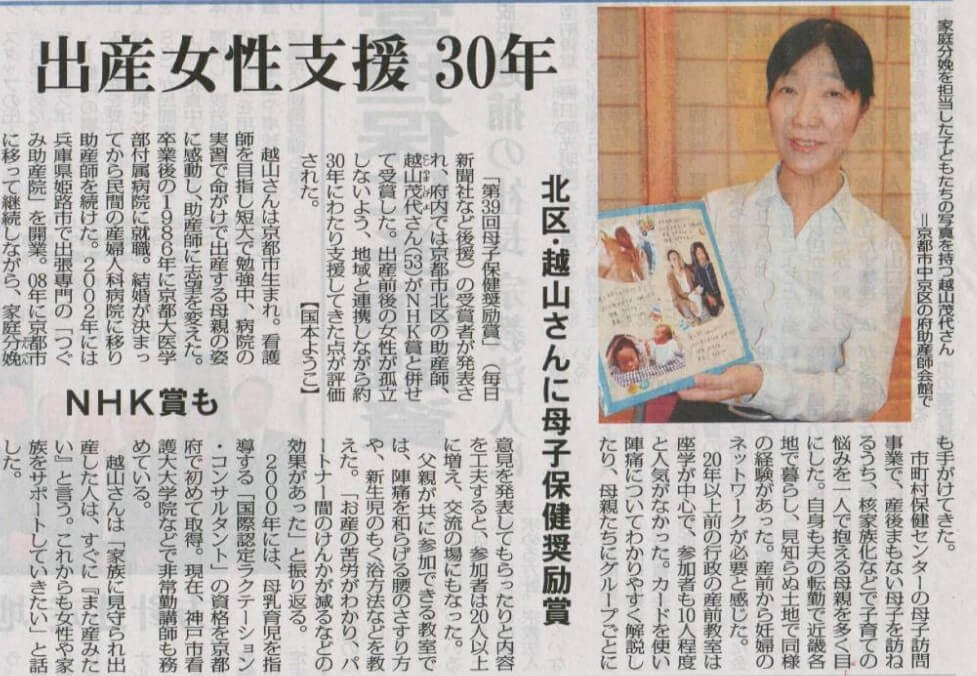 出産女性支援 30年
北区・越山さんに母子保健奨励賞
NHK賞も
家庭分娩を担当した子どもたちの写真を持つ越山茂代さん
＝京都市中京区の府助産師会館で
「第39回母子保健奨励賞」（毎日
新聞社など後援）の受賞者が発表さ
れ、府内では京都市北区の助産師、
越山茂代さん（53）がNHK賞と併せ
て受賞した。出産前後の女性が孤立
しないよう、地域と連携しながら約
30年にわたり支援してきた点が評価
された。
【国本ようこ】
越山さんは京都市生まれ。看護
師を目指し短大で勉強中、病院の
実習で命がけで出産する母親の姿
に感動し、助産師に志望を変えた。
卒業後の1986年に京都大医学
部付属病院に就職。結婚が決まっ
てから民間の産婦人科病院に移り
助産師を続けた。2002年には
兵庫県姫路市で出張専門の「つぐ
み助産院」を開業。08年に京都市
に移って継続しながら、家庭分娩
も手がけてきた。
市町村保健センターの母子訪問
事業で、産後まもない母子を訪ね
るうち、核家族化などで子育ての
悩みを一人で抱える母親を多く目
にした。自身も夫の転勤で近畿各
地で暮らし、見知らぬ土地で同様
の経験があった。産前から妊婦の
ネットワークが必要と感じた。
20年以上前の行政の産前教室は
座学が中心で、参加者も10人程度
と人気がなかった。カードを使い
陣痛についてわかりやすく解説し
たり、母親たちにグループごとに
意見を発表してもらったりと内容
を工夫すると、参加者は20人以上
に増え、交流の場にもなった。
父親が共に参加できる教室で
は、陣痛を和らげる腰のさすり方
や、新生児のもく浴方法などを教
えた。「お産の苦労がわかり、パ
ートナー間のけんかが減るなどの
効果があった」と振り返る。
2000年には、母乳育児を指
導する「国際認定ラクテーション
・コンサルタント」の資格を京都
府で初めて取得。現在、神戸市看
護大大学院などで非常勤講師も務
めている。
越山さんは「家族に見守られ出
産した人は、すぐに『また産みた
い』と言う。これからも女性や家
族をサポートしていきたい」と話
した。